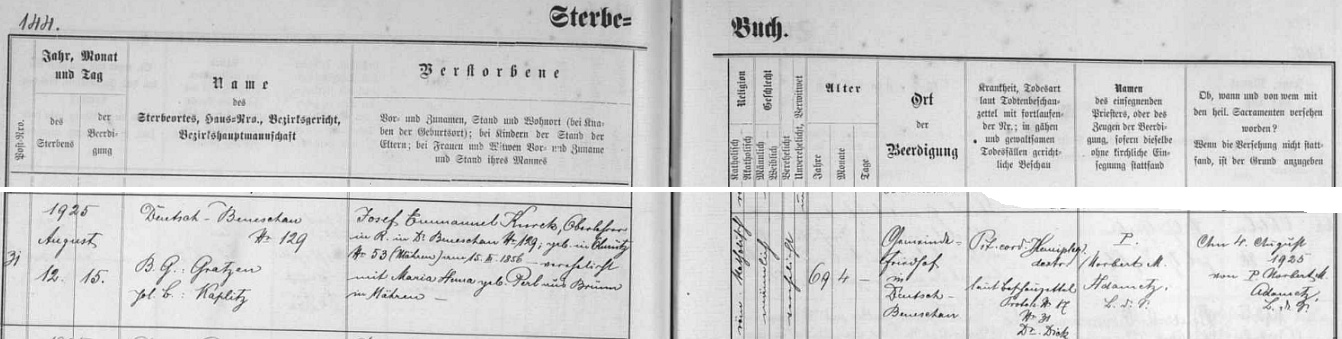 144.
Sterbe=
Buch.
Jahr, Monat
und Tag
des
Sterbens
der
Beerdi-
gung
Post-Nro.
Name
des
Sterbeortes, Haus-Nro., Bezirksgericht,
Bezirkshauptmannschaft
Verstorbene
Vor- und Zunamen, Stand und Wohnort (bei Kna-
ben der Geburtsort); bei Kindern der Stand der
Eltern; bei Frauen und Witwen Vor- und Zuname
und Stand ihres Mannes
Religion
Katholisch
Akatholisch
Geschlecht
Männlich
Weiblich
Verehelicht
Unverehelicht, Verwitwet
Alter
Jahre
Monate
Tage
Ort
der
Beerdigung
Krankheit, Todesart
laut Todtenbeschau-
zettel mit fortlaufen-
der Nr.; in gähen
und gewaltsamen
Todesfällen gericht-
liche Beschau
Namen
des einsegnenden
Priesters, oder des
Zeugen der Beerdi-
gung, sofern dieselbe
ohne kirchliche Ein-
segnung stattfand
Ob, wann und von wem mit
den heil. Sacramenten versehen
worden?
Wenn die Versehung nicht statt-
fand, ist der Grund anzugeben
31
1925
August
12. 15.
Deutsch-Beneschau
Nr 129
B.G.: Gratzen
pol. B.: Kaplitz
Josef Emmanuel Kurck, Oberlehrer
in R. in Dt. Beneschau Nr 129; geb. in Olmütz
Nr 53 (Mähren) am 15. 1856 verehelicht
mit Maria Anna geb. Perl aus Brünn
in Mähren
männlich
verehelicht
69 4 -
Gemeinde-
friedhof
in
Deutsch-
Beneschau
Vit. cord.
dextr.
Nr 31
P.
Norbert M.
Adametz,
Am 4. August
1925
von P. Norbert M.
Adametz,